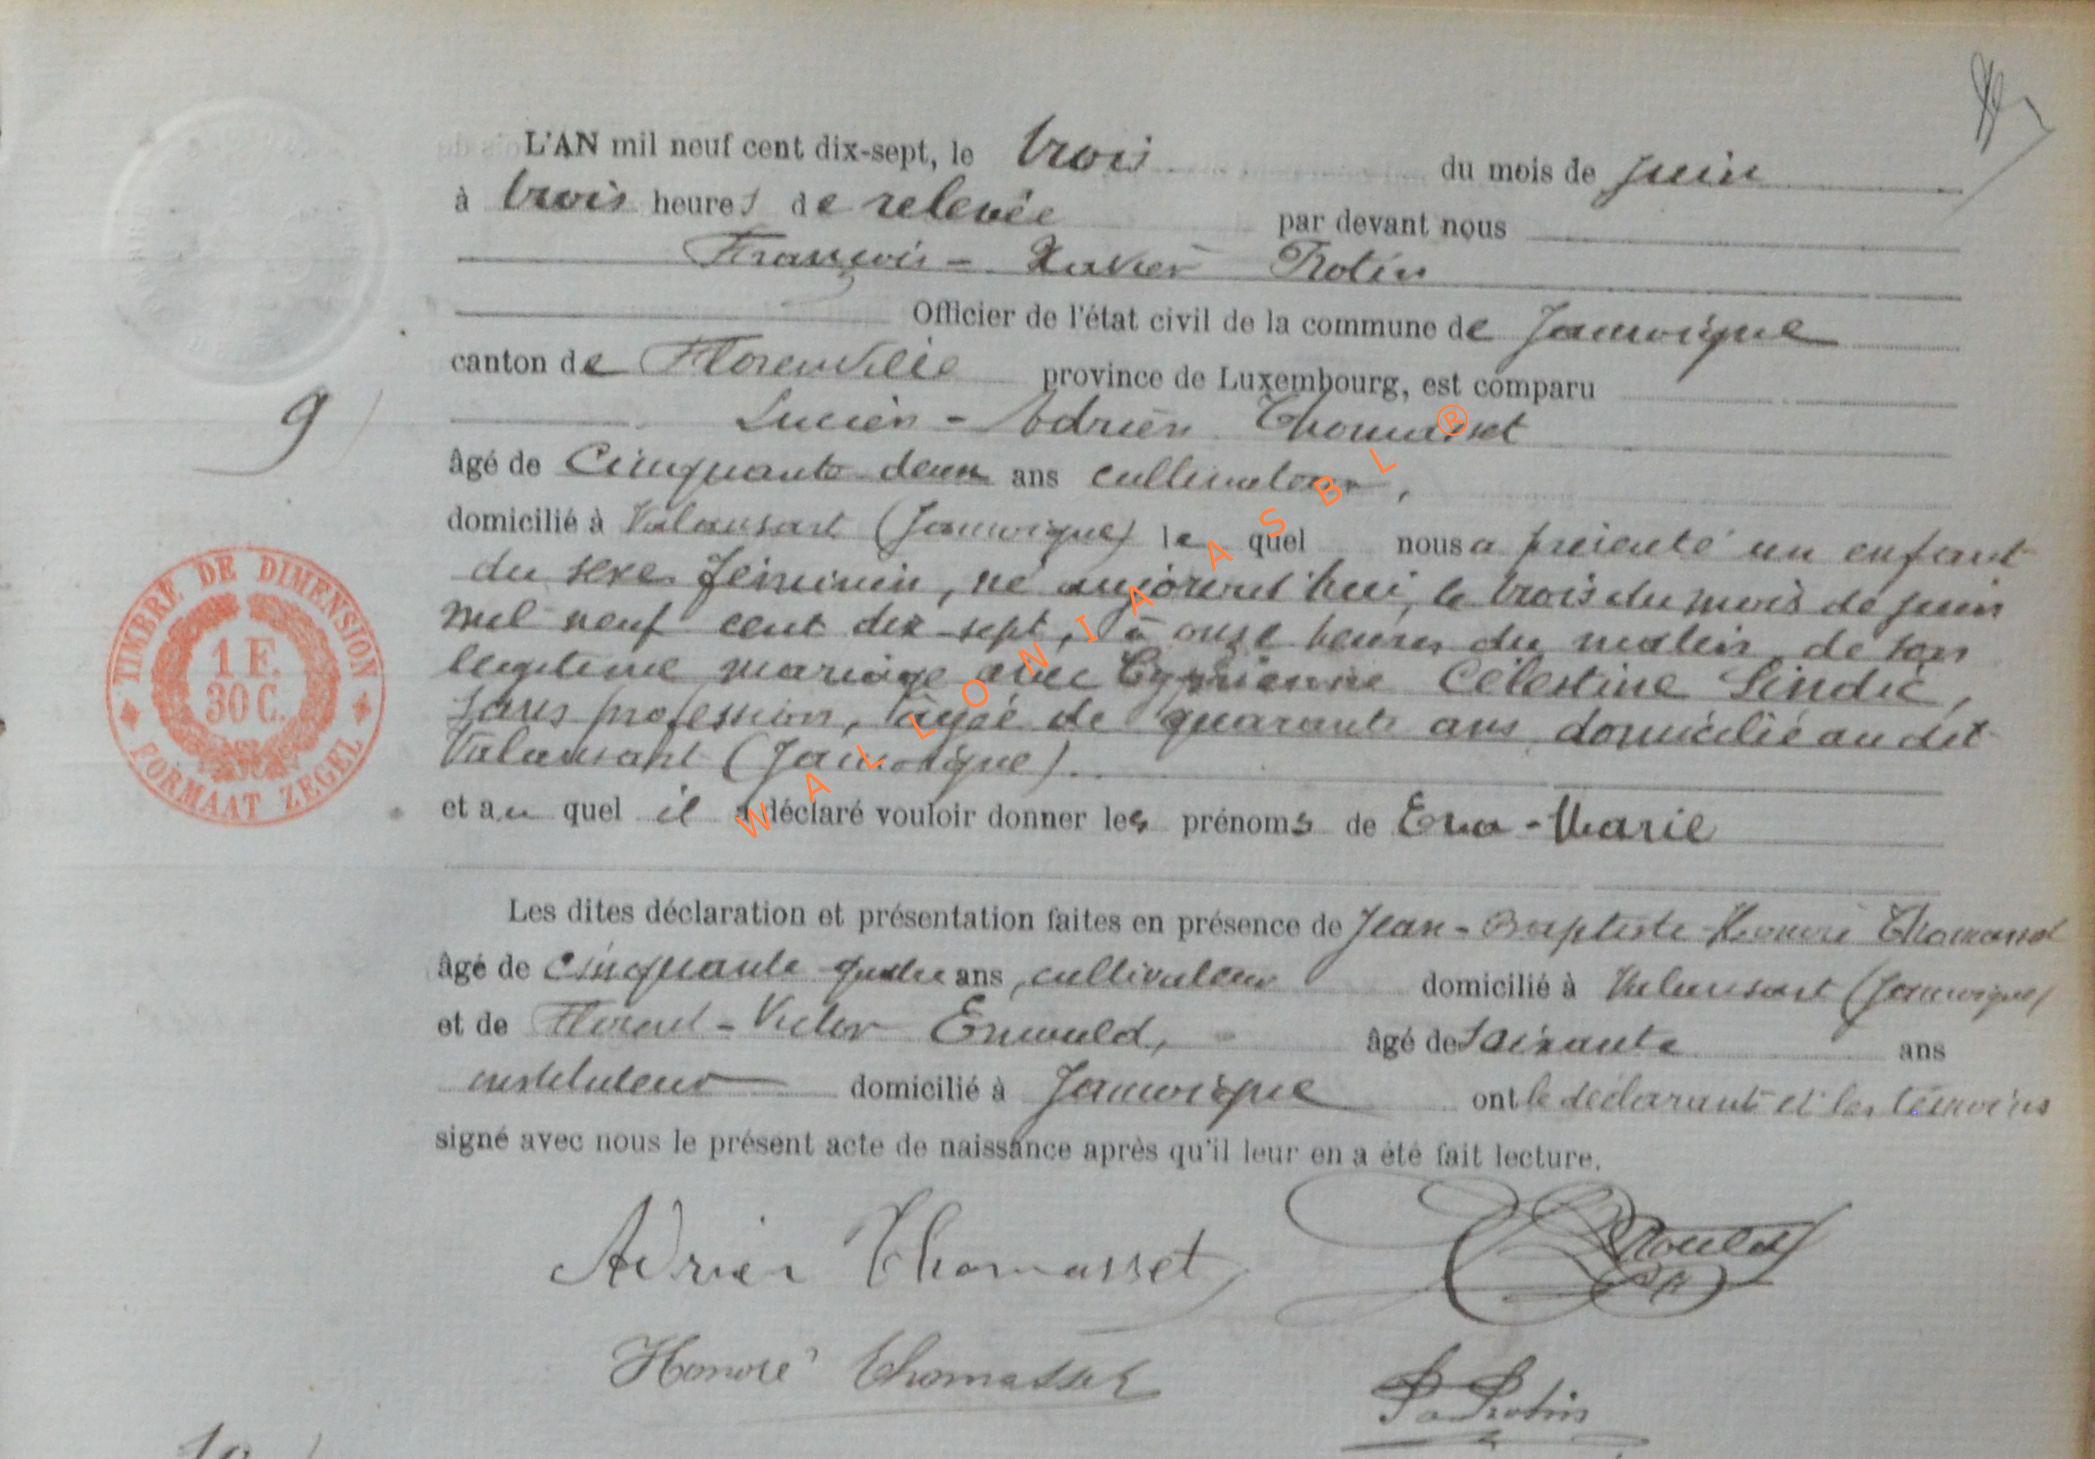 L'AN mil neuf cent dix-sept, le trois du mois de juin
à trois heures de relevée par devant nous
François-Xavier Rotin
Officier de l'état civil de la commune de Jamoigne
canton de Florenville province de Luxembourg, est comparu
Lucien-Adrien Thomasset
9
âgé de Cinquante deux ans cultivateur,
domicilié à Valansart (Jamoigne) le quel nous a présenté un enfant
du sexe féminin, né aujourd'hui, le trois du mois de juin
mil neuf cent dix-sept, à onze heures du matin de son
légitime mariage avec Cyprienne Célestine Sindic,
sans profession, âgée de quarante ans domicilié au dit
Valansart (Jamoigne).
et au quel il a déclaré vouloir donner les prénoms de Eva-Marie
TIMBRE DE DIMENSION
1 F.
30 C.
FORMAAT ZEGEL
WALLONIA ASBL ®
Les dites déclaration et présentation faites en présence de Jean-Baptiste Honoré
âgé de cinquante quatre ans, cultivateur domicilié à Valansart (Jamoigne)
et de Florent-Victor âgé de soixante ans
instituteur domicilié à Jamoigne ont le déclarant et les témoins
signé avec nous le présent acte de naissance après qu'il leur en a été fait lecture.
Adrien Thomasset
Honoré Thomasset
10